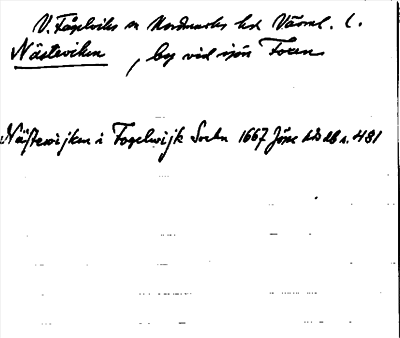 V. Fågelviks sn Nordmarks hd Värml. l.
Nästeviken, by vid sjön Foxen
Näſtewijken i Fogelwijk Sockn 1667 Jöns db s. 481